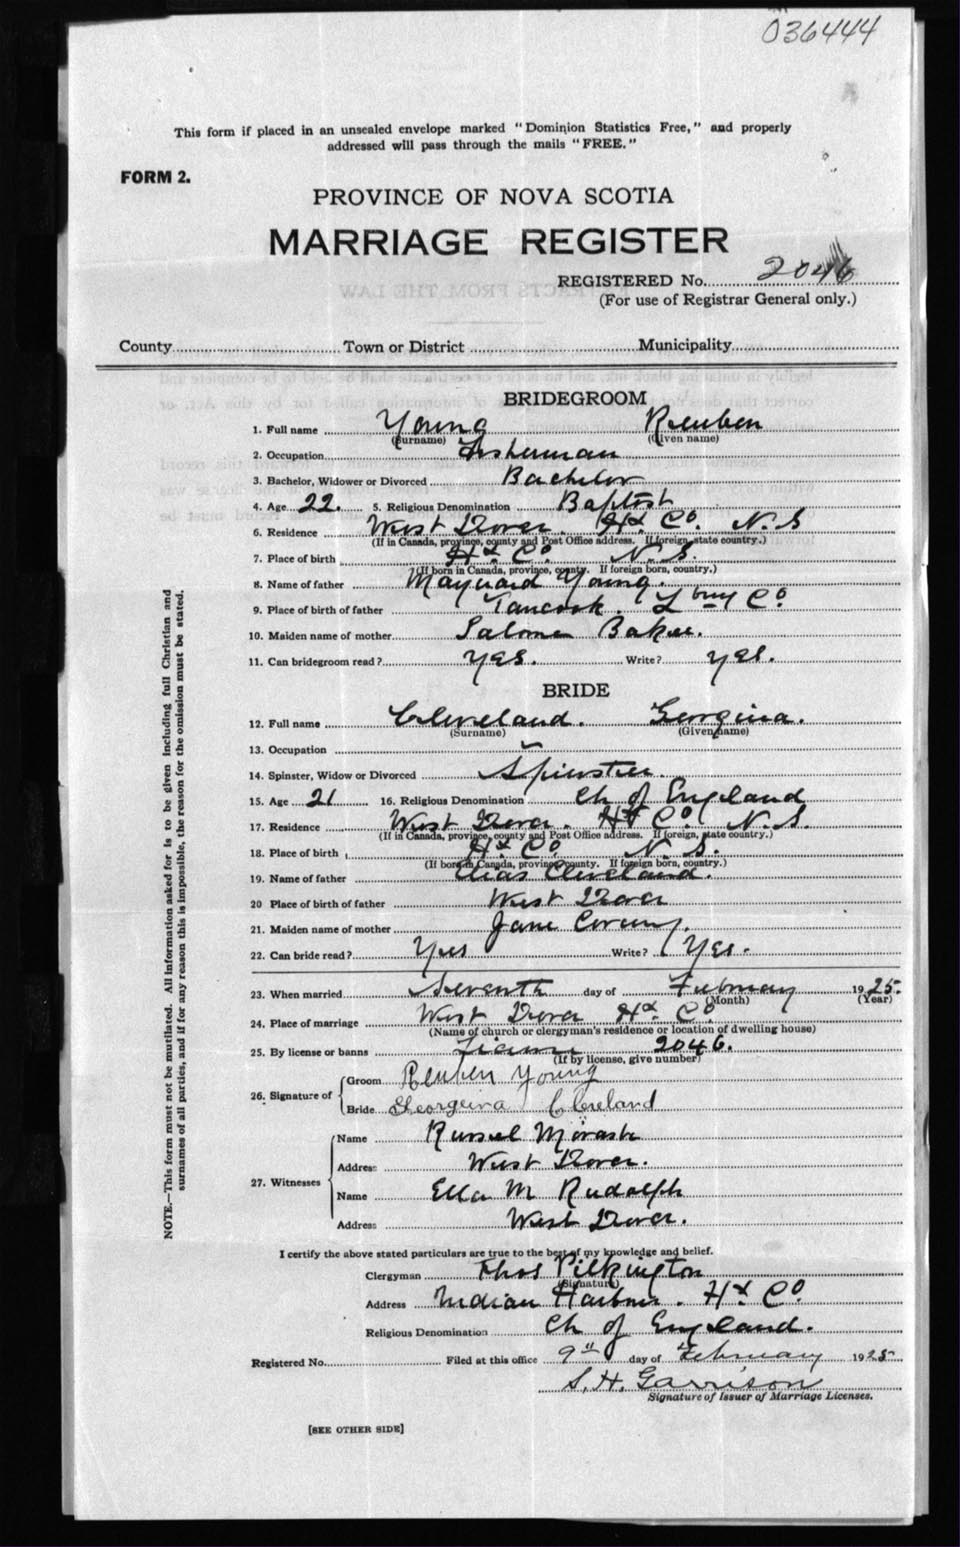 036444
This form if placed in an unsealed envelope marked "Dominion Statistics Free," and properly
addressed will pass through the mails "FREE."
FORM 2.
PROVINCE OF NOVA SCOTIA
MARRIAGE REGISTER
REGISTERED No. 2046
(For use of Registrar General only.)
County Town or District Municipality
BRIDEGROOM
1. Full name Young Reuben
(Surname) (Given name)
2. Occupation Fisherman
3. Bachelor, Widower or Divorced Bachelor
4. Age 22. 5. Religious Denomination Baptist
6. Residence West Dover Hx Co. N.S
(If in Canada, province, county and Post Office address. If foreign, state country.)
7. Place of birth Hx Co N.S.
(If born in Canada, province, county. If foreign born, country.)
8. Name of father Maynard Young.
9. Place of birth of father Tancook. Co
10. Maiden name of mother Salome Baker.
11. Can bridegroom read? Yes. Write? yes.
BRIDE
12. Full name Cleveland. Georgina.
(Surname) (Given name)
13. Occupation
14. Spinster, Widow or Divorced Spinster
15. Age 21 16. Religious Denomination Ch of England
17. Residence West Dover. Hx Co N.S.
(If in Canada, province, county and Post Office address. If foreign, state country.)
18. Place of birth Hx Co N.S.
(If born in Canada, province, county. If foreign born, country.)
19. Name of father Cleveland.
20 Place of birth of father West Dover
21. Maiden name of mother Jane
22. Can bride read? Yes Write? Yes.
23. When married Seventh day of February 1925.
(Month) (Year)
24. Place of marriage West Dover Hx. Co
(Name of church or clergyman's residence or location of dwelling house)
25. By license or banns License 2046.
(If by license, give number)
26. Signature of
Groom Reuben Young
Bride Georgeina Cleveland
27. Witnesses
Name Russel Morash
Address West Dover.
Name Ella M Rudolph
Address West Dover.
I certify the above stated particulars are true to the best of my knowledge and belief.
Clergyman Thos Pilkington
(Signature)
Address Indian Harbour. Hx Co
Religious Denomination Ch of England.
Registered No. Filed at this office 9th day of February 1925
S. H. Garrison
Signature of Issuer of Marriage Licenses.
[SEE OTHER SIDE]
NOTE.—This form must not be mutilated. All information asked for is to be given including full Christian and
surnames of all parties, and if for any reason this is impossible, the reason for the omission must be stated.